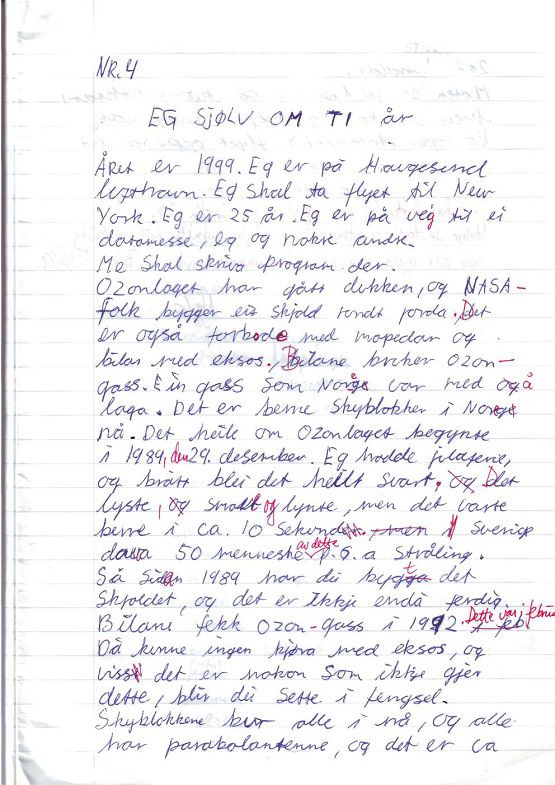 NR.4
EG SJØLV OM TI år
Året er 1999. Eg er på Haugesund
lufthavn. Eg Skal ta flyet til New
York. Eg er 25 år. Eg er på veg til ei
datamesse, eg og nokre andre.
Me Skal skriva program der.
Ozonlaget har gått dukken, og NASA-
folk bygger eit skjold rundt jorda. Det
er også forbode med mopedar og
bilar med eksos. Bilane bruker Ozon-
gass. Ein gass som Norge var med å
laga. Det er berre Skyblokker i Norge
nå. Det heile om Ozonlaget begynte
i 1989, den 29. desember. Eg hadde juleferie,
og brått blei det heilt svart. Det
lyste, og smalt og lynte, men det varte
berre i ca. 10 Sekund. I Sverige
daua 50 menneske av dette p.g.a Stråling.
Så Sidan 1989 har dei bygt det
Skjoldet, og det er Ikkje endå ferdig.
Bilane fekk Ozon-gass i 1992. Dette var i februar
Då kunne ingen kjøra med eksos, og
viss det er nokon Som ikkje gjer
dette, blir dei Sette i fengsel.
Skyblokkene bur alle i nå, og alle
har parabolantenne, og det er ca